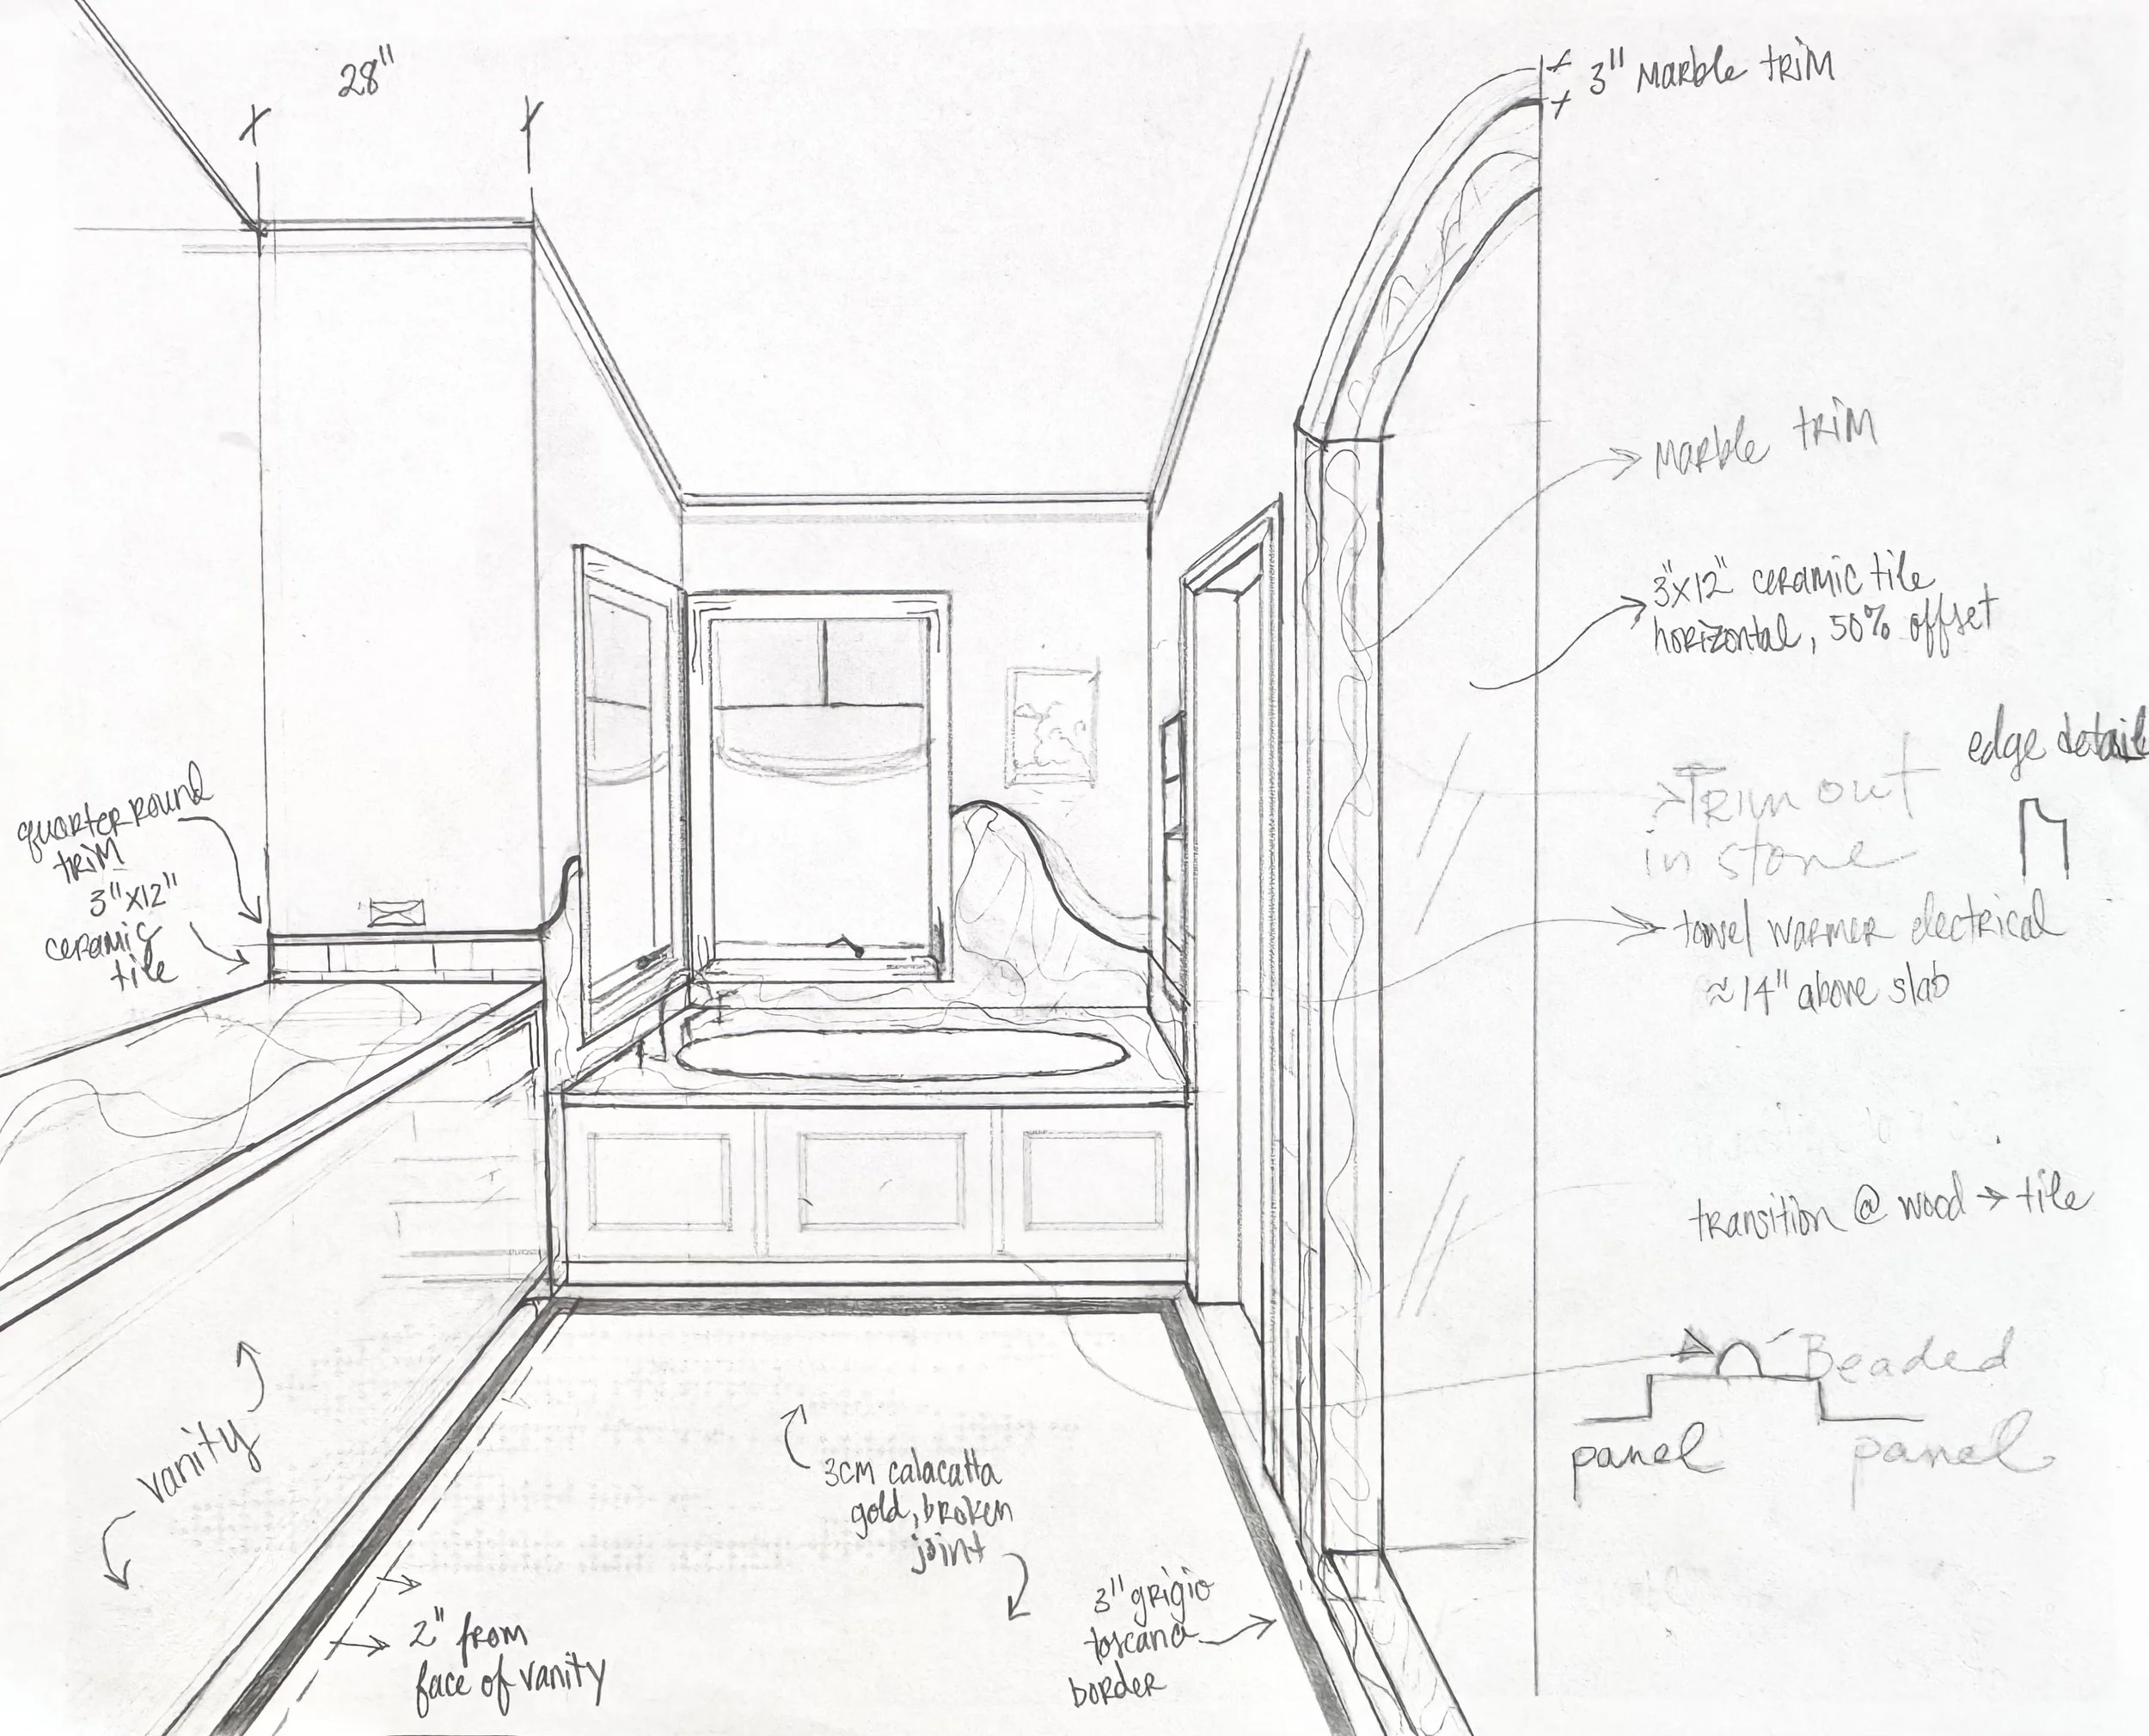 28"
3" Marble trim
Marble trim
3"x12" ceramic tile
horizontal, 50% offset
edge detail
Trim out
in stone
quarter round
trim
3"x12"
ceramic
tile
towel warmer electrical
≈ 14" above slab
transition @ wood → tile
Beaded
panel
panel
vanity
3cm calacatta
gold, broken
joint
3" grigio
toscana
border
2" from
face of vanity